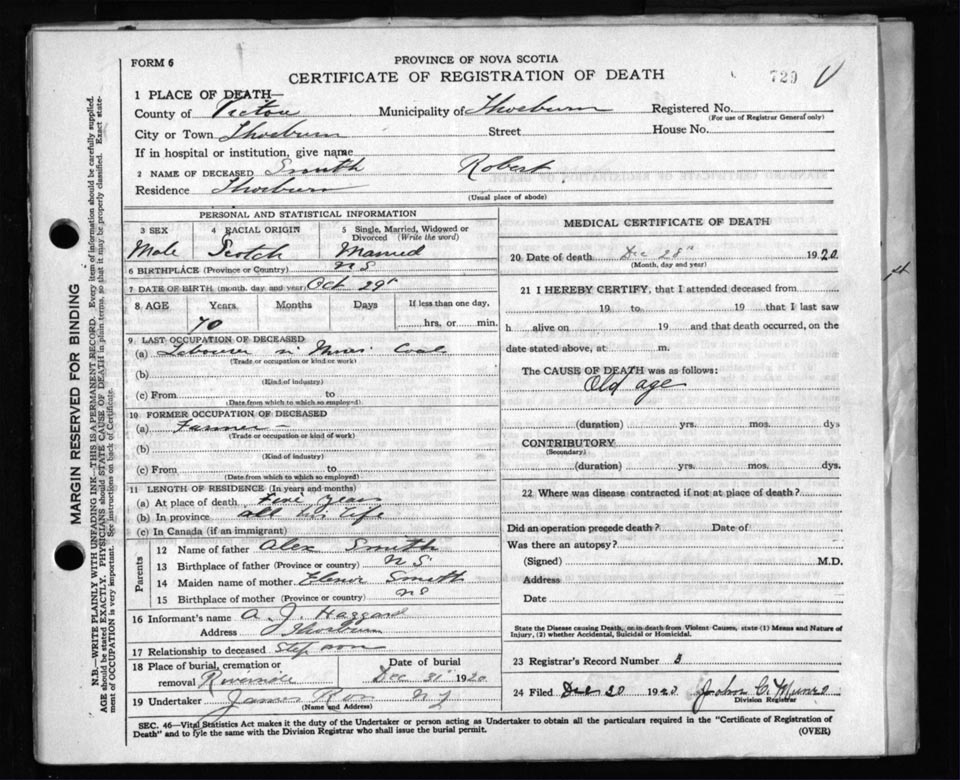 FORM 6
PROVINCE OF NOVA SCOTIA
CERTIFICATE OF REGISTRATION OF DEATH
729
1 PLACE OF DEATH—
County of Pictou Municipality of Thorburn Registered No.
(For use of Registrar General only)
City or Town Thorburn Street House No.
If in hospital or institution, give name
2 NAME OF DECEASED Smith Robert
Residence Thorburn
(Usual place of abode)
PERSONAL AND STATISTICAL INFORMATION
3 SEX 4 RACIAL ORIGIN 5 Single, Married, Widowed or Divorced (Write the word)
Male Scotch Married
6 BIRTHPLACE (Province or Country) N S
7 DATE OF BIRTH (month, day and year) Oct 29
8 AGE Years Months Days If less than one day,
70 hrs. or min.
9. LAST OCCUPATION OF DECEASED
(a) Labourer in Mines Coal
(Trade or occupation or kind of work)
(b)
(Kind of industry)
(c) From to
(Date from which to which so employed)
10 FORMER OCCUPATION OF DECEASED
(a) Farmer -
(Trade or occupation or kind of work)
(b)
(Kind of industry)
(c) From to
(Date from which to which so employed)
11 LENGTH OF RESIDENCE (In years and months)
(a) At place of death Five years
(b) In province all his life
(c) In Canada (if an immigrant)
Parents
12 Name of father Alex Smith
13 Birthplace of father (Province or country) N S.
14 Maiden name of mother Smith
15 Birthplace of mother (Province or country) N S
16 Informant's name A. J. Haggard
Address Thorburn
17 Relationship to deceased Step son
18 Place of burial, cremation or removal Date of burial
Dec 31st 1920
19 Undertaker James
(Name and Address)
MEDICAL CERTIFICATE OF DEATH
20 Date of death Dec 28th 1920
(Month, day and year)
21 I HEREBY CERTIFY, that I attended deceased from
19 to 19 that I last saw
h alive on 19 and that death occurred, on the
date stated above, at m.
The CAUSE OF DEATH was as follows:
Old age
(duration) yrs. mos. dys
CONTRIBUTORY
(Secondary)
(duration) yrs. mos. dys.
22 Where was disease contracted if not at place of death?
Did an operation precede death? Date of
Was there an autopsy?
(Signed) M.D.
Address
Date
State the Disease causing Death, or in death from Violent Causes, state (1) Means and Nature of
Injury, (2) whether Accidental, Suicidal or Homicidal.
23 Registrar's Record Number
24 Filed 1920 John C. Munro
Division Registrar
SEC. 46—Vital Statistics Act makes it the duty of the Undertaker or person acting as Undertaker to obtain all the particulars required in the "Certificate of Registration of
Death" and to fyle the same with the Division Registrar who shall issue the burial permit.
(OVER)
MARGIN RESERVED FOR BINDING
N.B.—WRITE PLAINLY WITH UNFADING INK—THIS IS A PERMANENT RECORD. Every item of information should be carefully supplied.
AGE should be stated EXACTLY. PHYSICIANS should STATE CAUSE OF DEATH in plain terms, so that it may be properly classified. Exact state-
ment of OCCUPATION is very important. See instructions on back of Certificate.